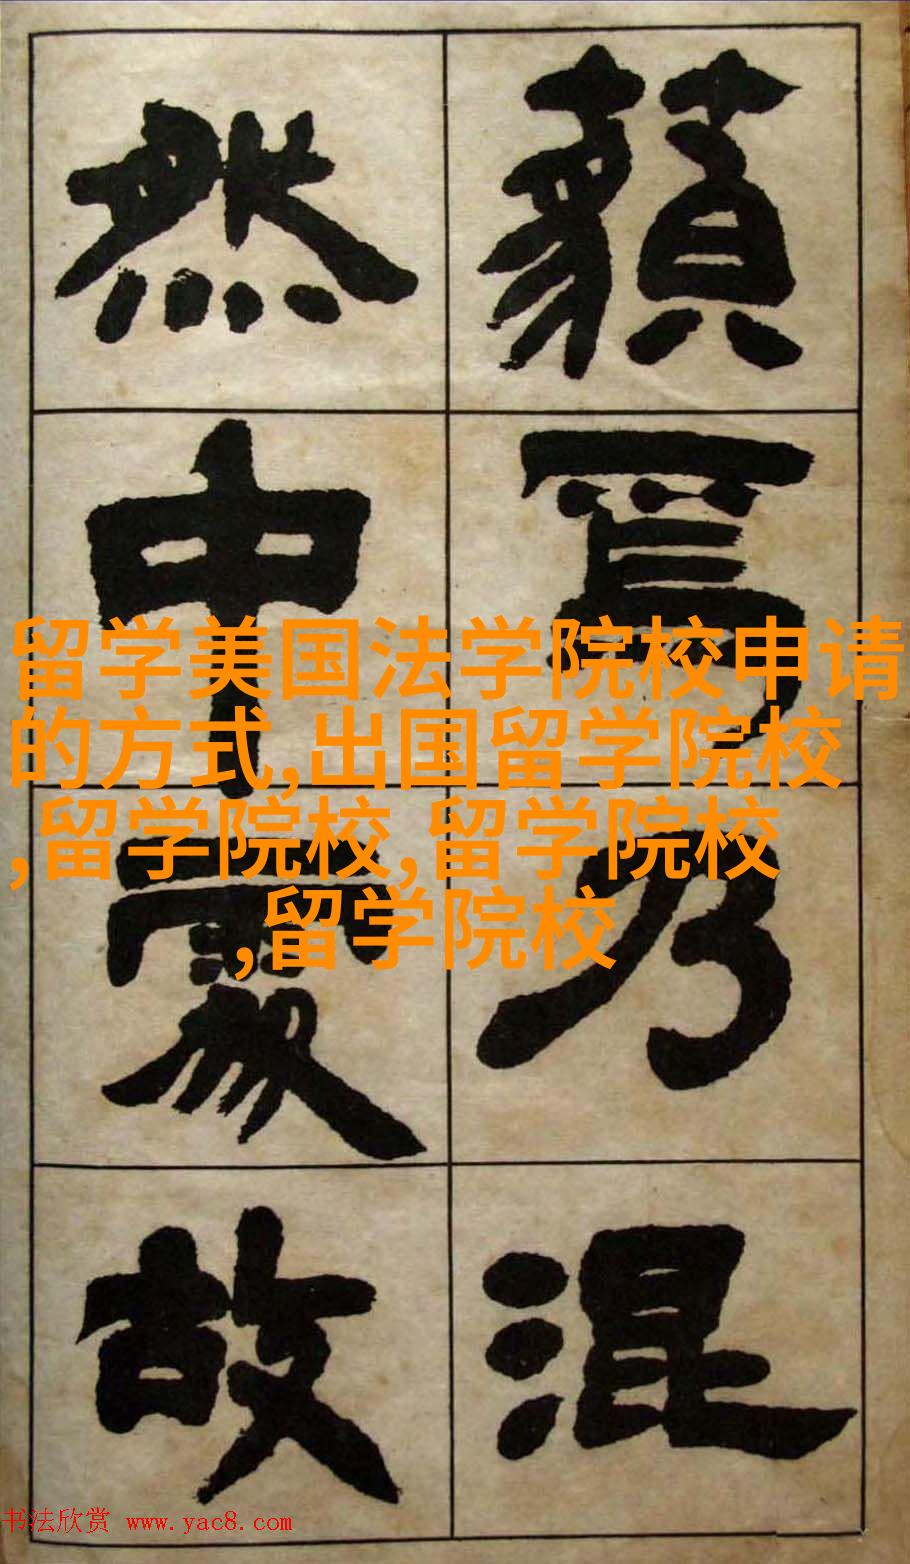 藐焉乃混
然中處故
留学美国法学院校申请
的方式,出国留学院校
,留学院校,留学院校
,留学院校
书法欣赏 www.yac8.com